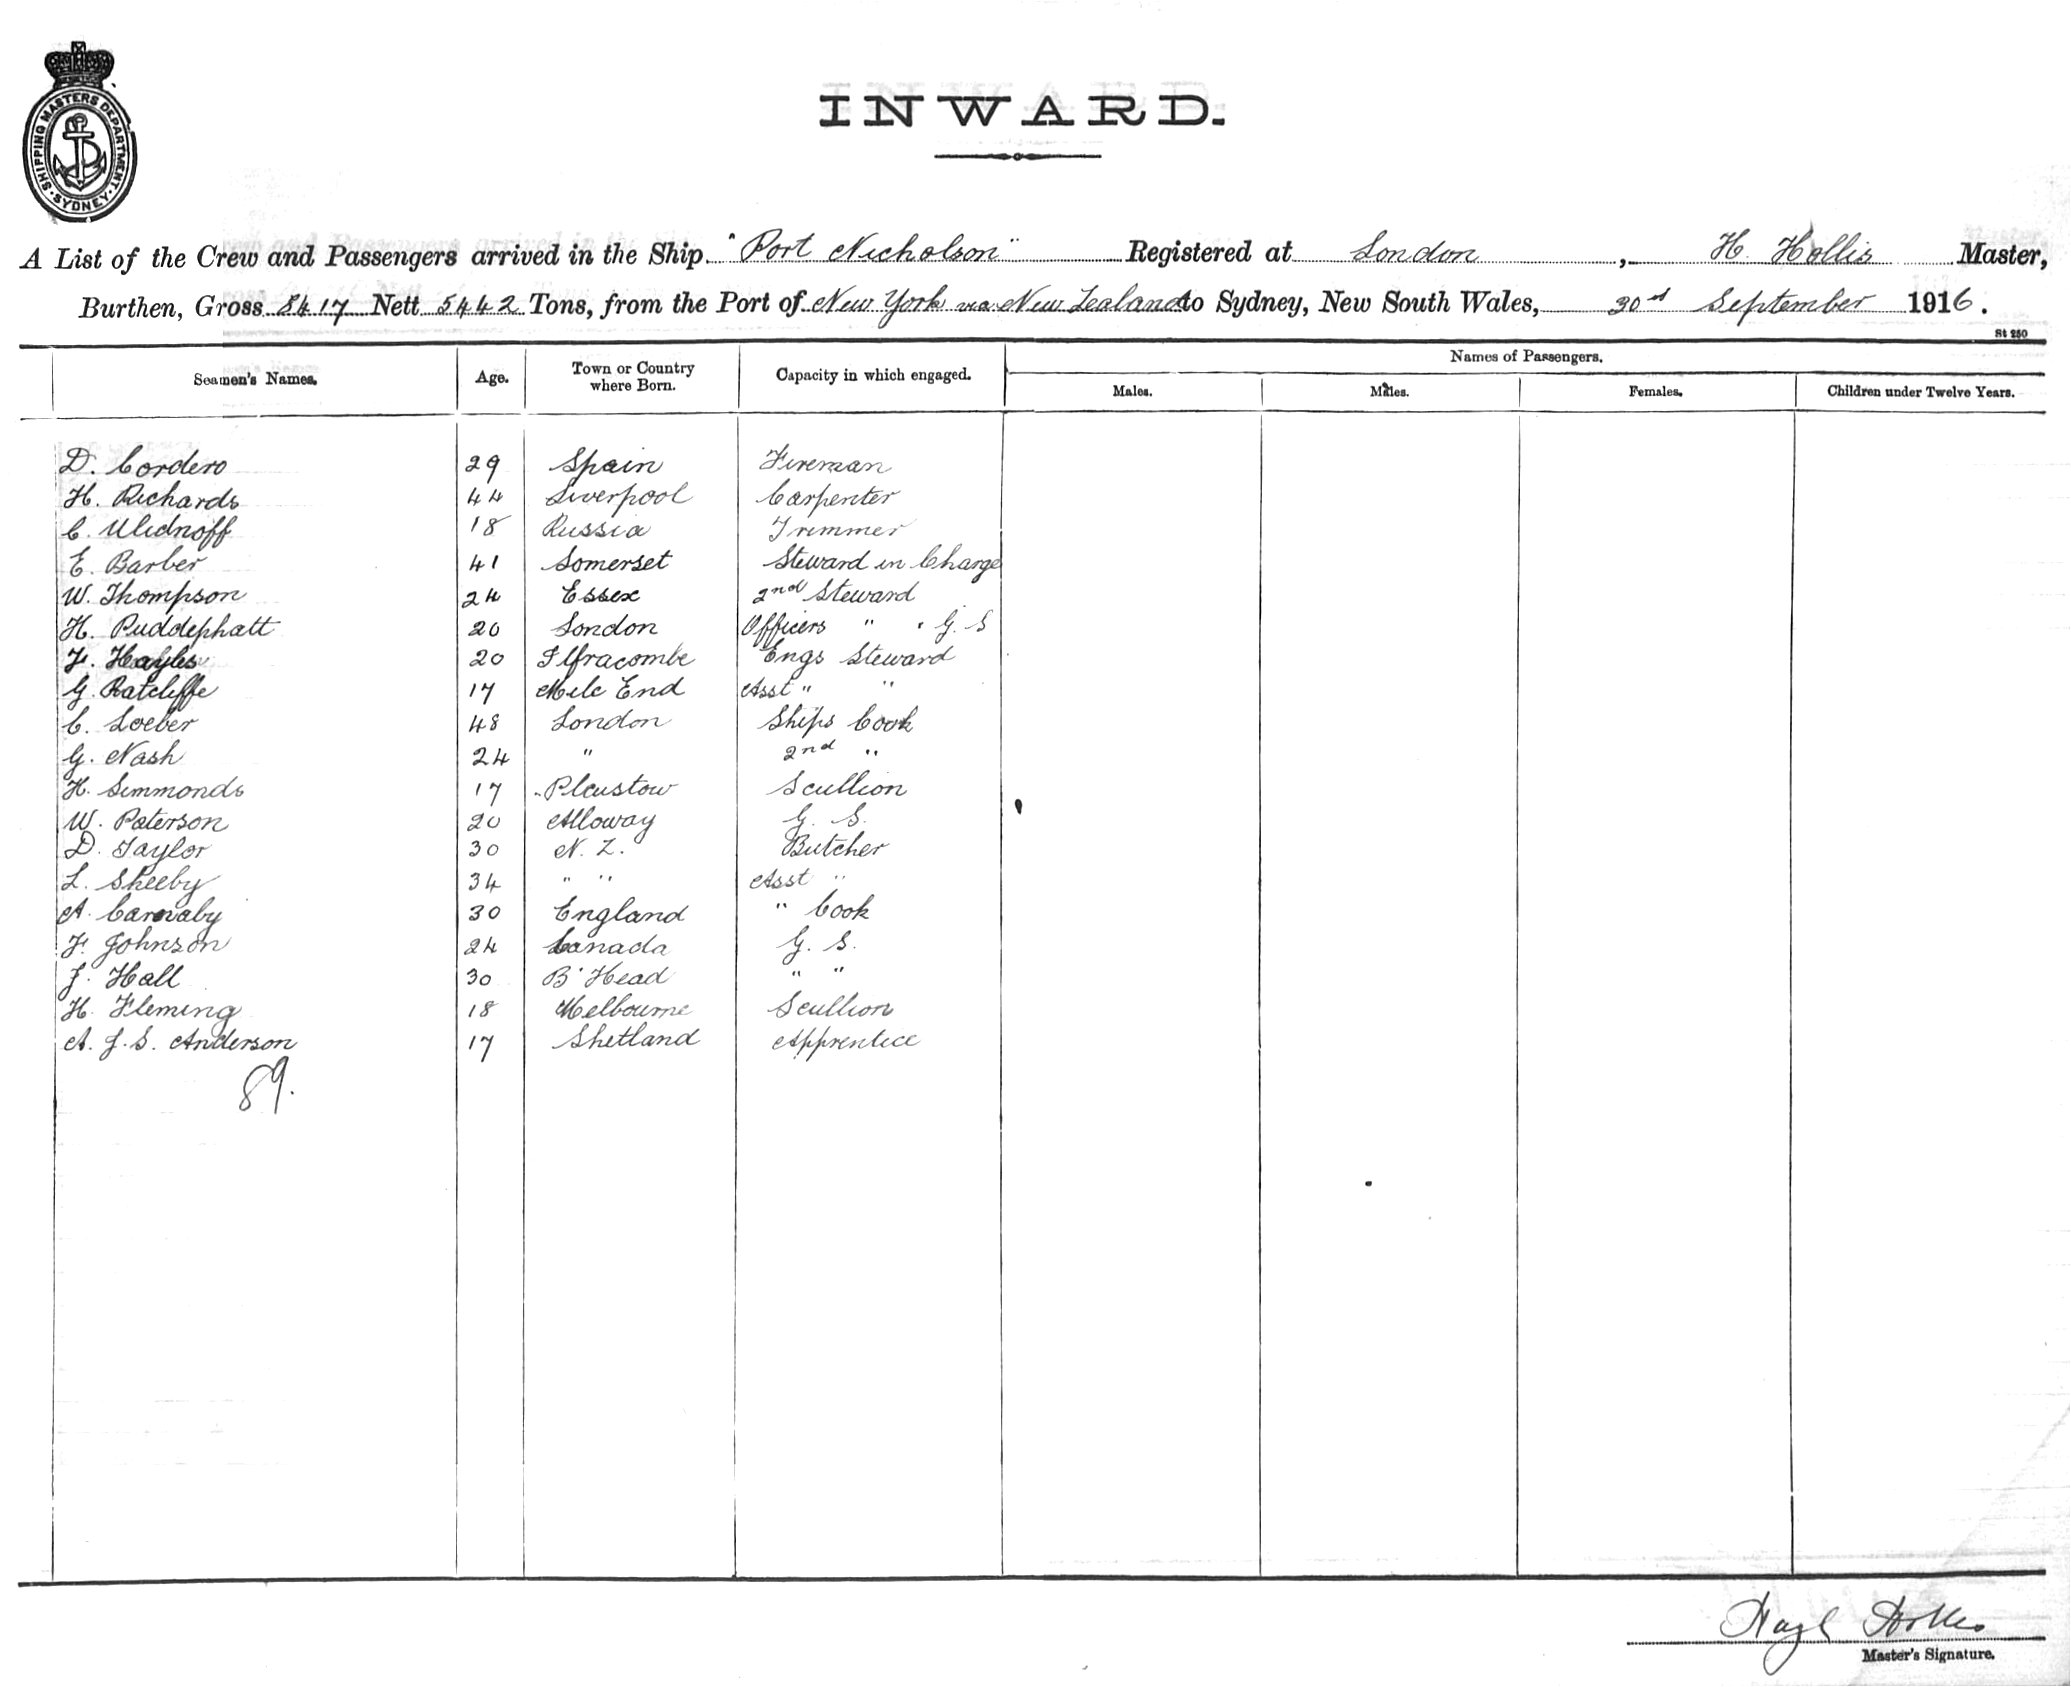 SHIPPING MASTERS DEPARTMENT · SYDNEY ·
INWARD.
A List of the Crew and Passengers arrived in the Ship "Port Nicholson" Registered at London, H. Hollis Master,
Burthen, Gross 8417 Nett 5442 Tons, from the Port of New York via New Zealand to Sydney, New South Wales, 30th September 1916.
St 250
Seamen's Names. Age. Town or Country where Born. Capacity in which engaged. Names of Passengers.
Males. Males. Females. Children under Twelve Years.
D. Cordero 29 Spain Fireman
H. Richards 44 Liverpool Carpenter
C. Ulidnoff 18 Russia Trimmer
E. Barber 41 Somerset Steward in Charge
W. Thompson 24 Essex 2nd Steward
H. Puddephatt 20 London Officers " " G. S
F. Hayles 20 Ilfracombe Engs Steward
G. Ratcliffe 17 Mile End Asst " "
C. Loeber 48 London Ships Cook
G. Nash 24 " 2nd "
H. Simmonds 17 Plaistow Scullion
W. Paterson 20 Alloway G. S.
D. Taylor 30 N. Z. Butcher
L. Sheeby 34 " " Asst "
A. Carnaby 30 England " Cook
F. Johnson 24 Canada G. S.
J. Hall 30 B'Head " "
H. Fleming 18 Melbourne Scullion
A. J. S. Anderson 17 Shetland Apprentice
89.
Hollis
Master's Signature.